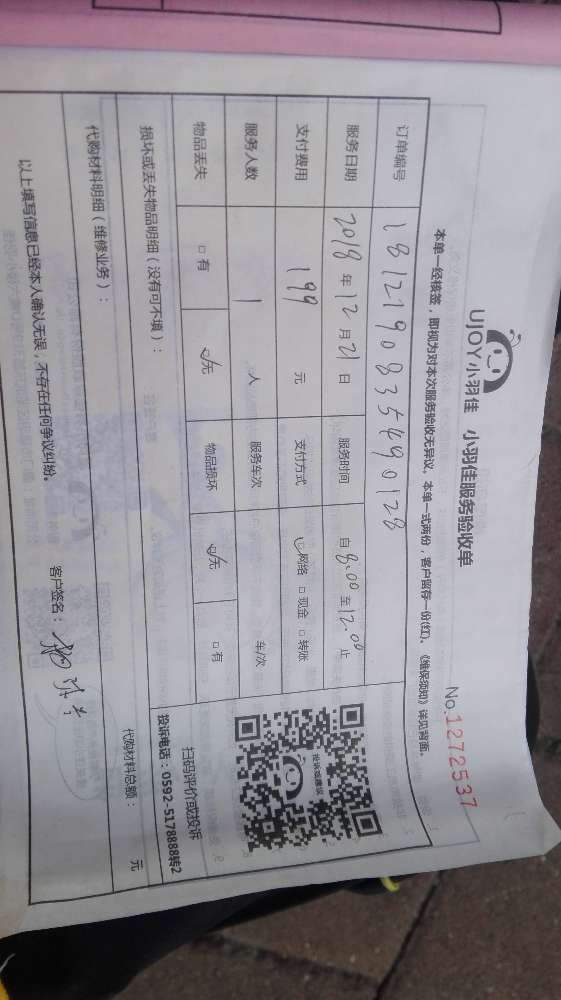 UJOY小羽佳 小羽佳服务验收单
No.1272537
本单一经核签，即视为对本次服务验收无异议。本单一式两份，客户留存一份(红)。《维保须知》详见背面。
订单编号 1812190835490128
服务日期 2018年12月21日 服务时间 自8:00至12:00止
支付费用 199 元 支付方式 网络 □现金 □转账
服务人数 1 人 服务车次 车/次
物品丢失 □有 无 物品损坏 无 □有
投诉或建议
扫码评价或投诉
投诉电话：0592-5178888转2
损坏或丢失物品明细（没有可不填）：
代购材料明细（维修业务）：
代购材料总额： 元
以上填写信息已经本人确认无误，不存在任何争议纠纷。
客户签名：